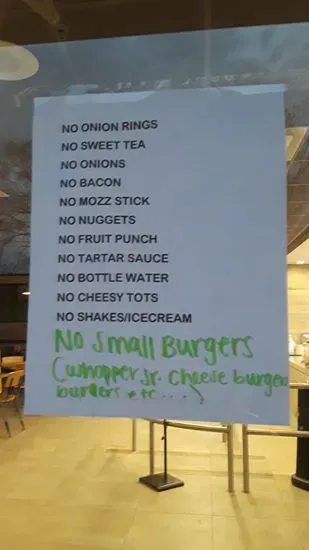 NO ONION RINGS
NO SWEET TEA
NO ONIONS
NO BACON
NO MOZZ STICK
NO NUGGETS
NO FRUIT PUNCH
NO TARTAR SAUCE
NO BOTTLE WATER
NO CHEESY TOTS
NO SHAKES/ICECREAM
No Small Burgers
(whopper Jr. Cheese burger
burgers etc....)